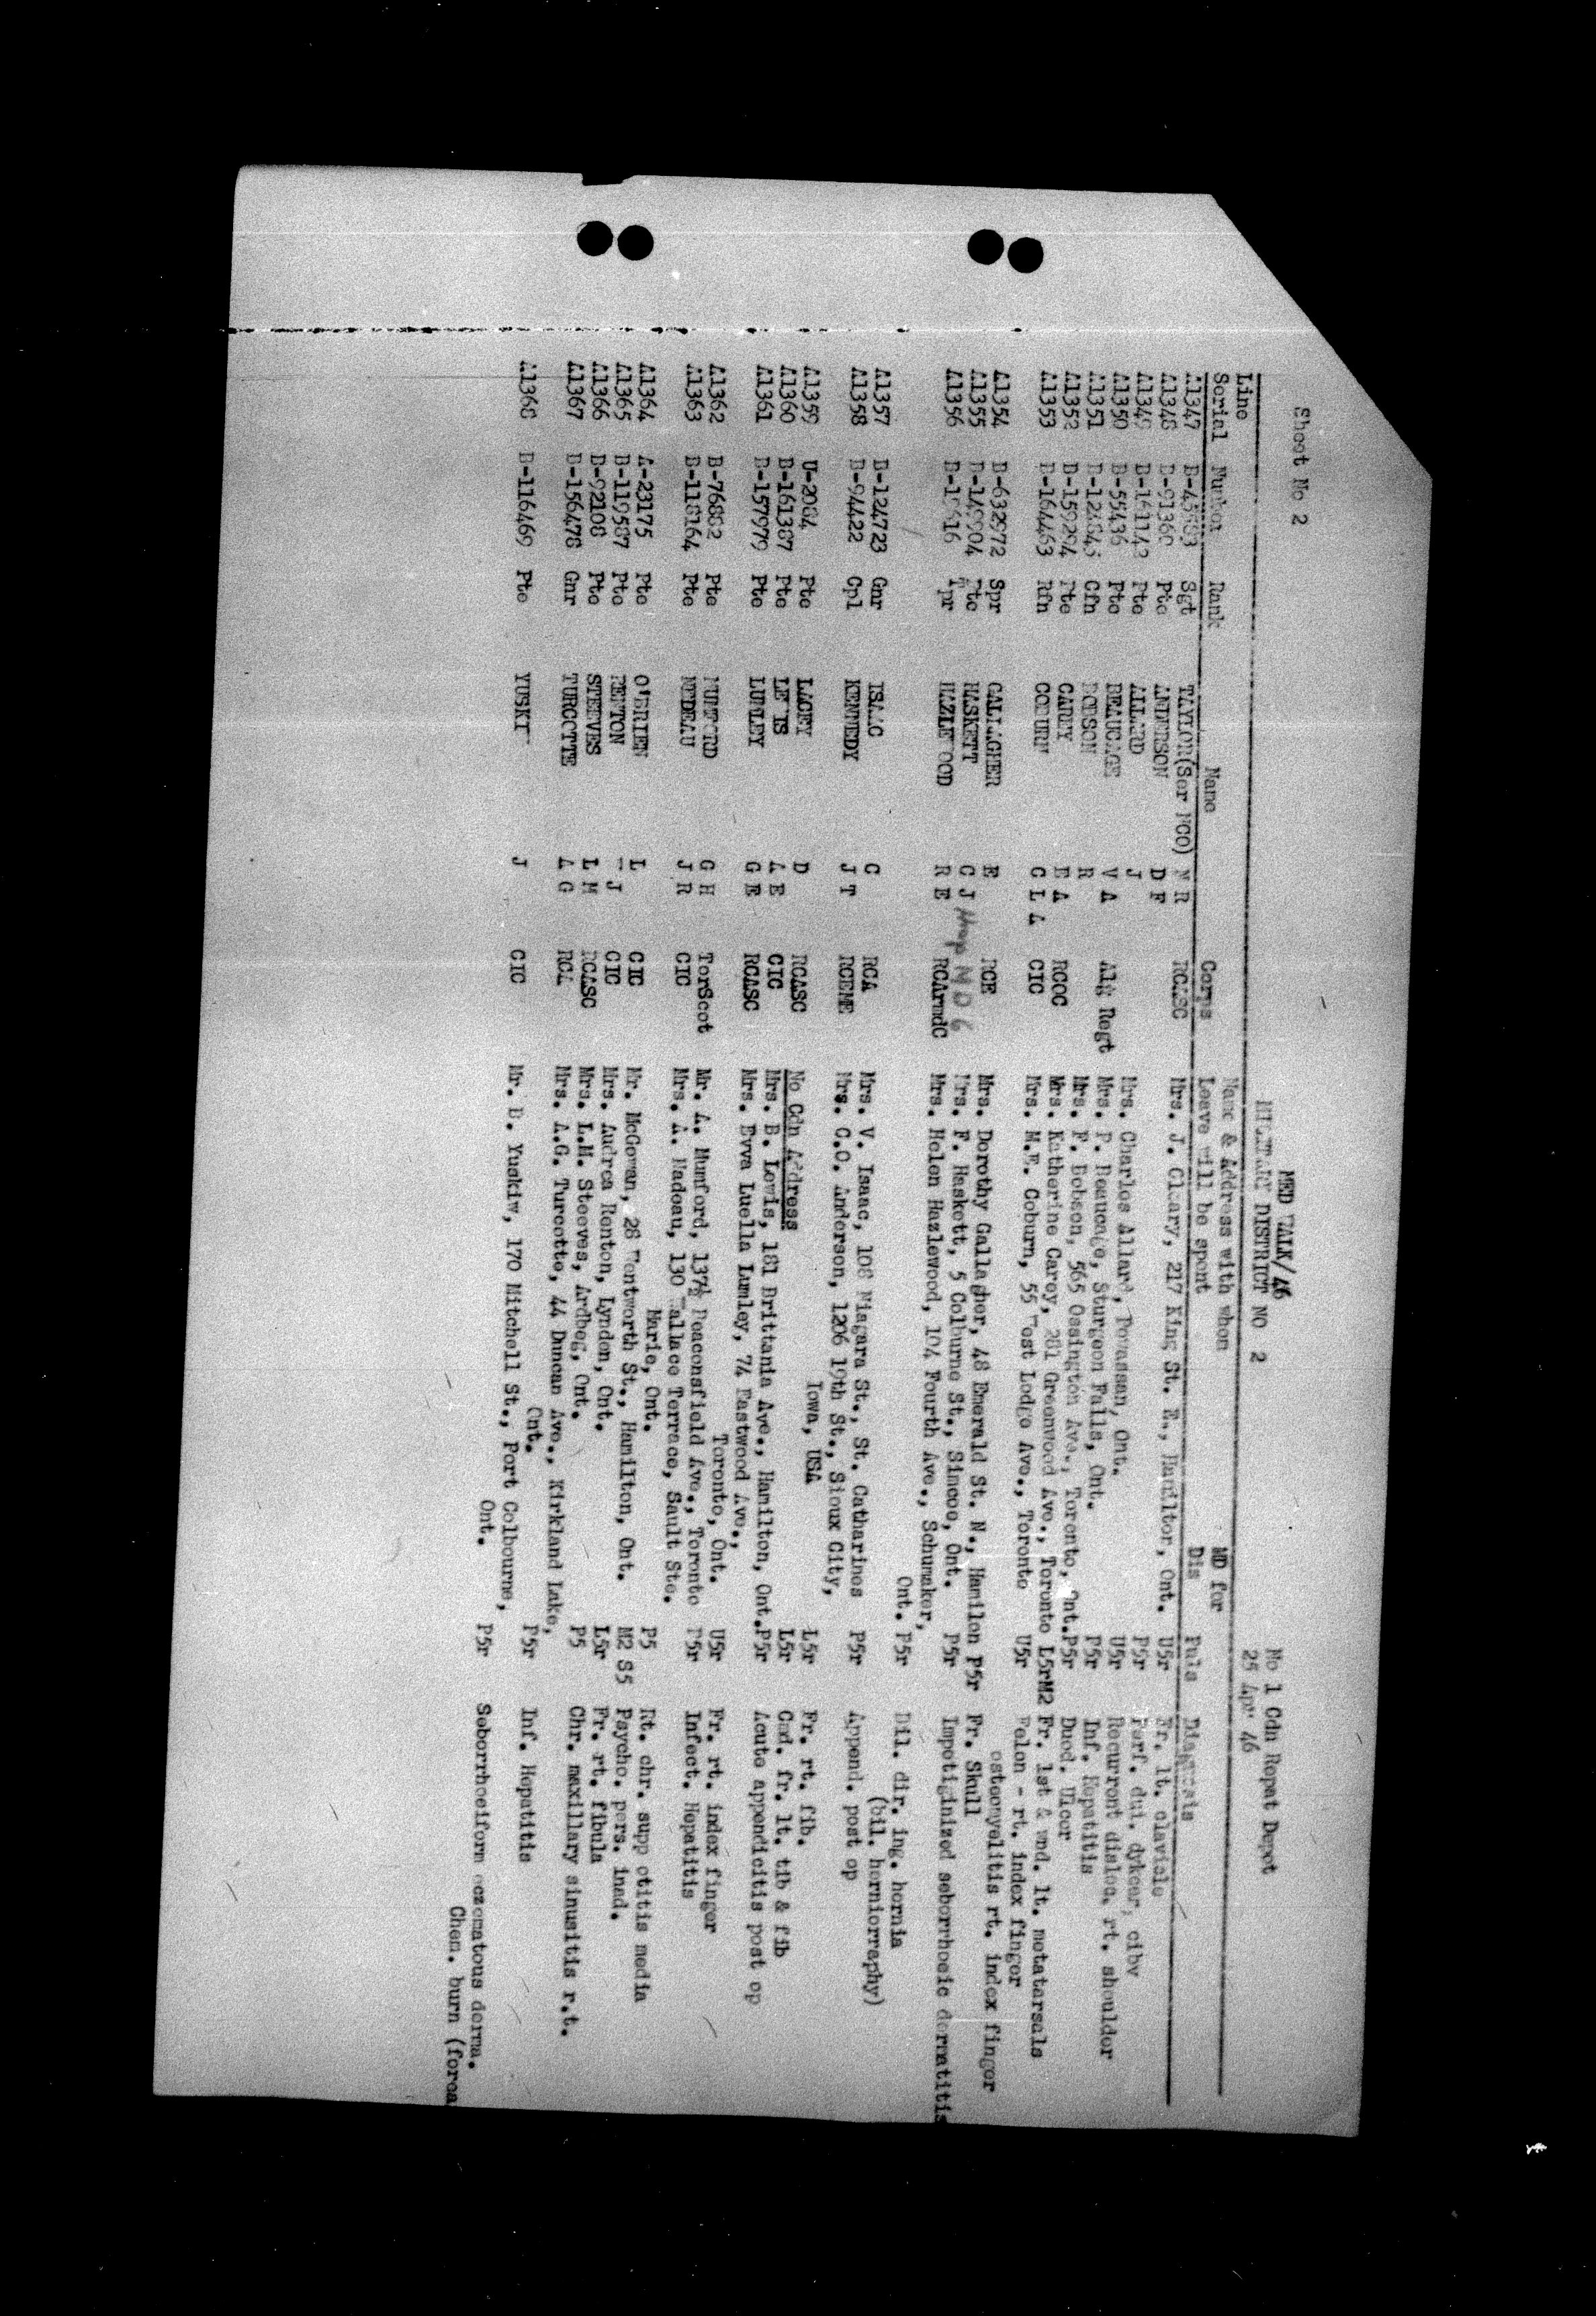 Sheet No 2
MED WALK/46
MILITARY DISTRICT NO 2
No 1 Cdn Repat Depot
25 Apr 46
Line Name & Address with whom MD for
Serial Number Rank Name Corps Leave will be spent Dis Puls Diagnosis
A1347 Sgt TAYLOR(Ser NCO) N R RCASC Mrs. J. Cleary, 217 King St. E., Hamilton, Ont. U5r Fr. lt. clavicle
A1348 B-91360 Pte ANDERSON D F P5r Perf.
A1349 B-161142 Pte ALLARD J Mrs. Charles Allard, Powassan, Ont. U5r Recurrent disloc. rt. shoulder
A1350 B-55436 Pte BEAUCAGE V A Alg Regt Mrs. P. Beaucage, Sturgeon Falls, Ont. P5r Inf. Hepatitis
A1351 Cfn BOBSON R Mrs. F. Bobson, 565 Ossington Ave., Toronto, Ont. P5r Duod. Ulcer
A1352 B-159294 Pte CAREY E A RCOC Mrs. Katherine Carey, 281 Greenwood Ave., Toronto L5rM2 Fr. 1st & 2nd. lt. metatarsals
A1353 B-164463 Rfn COBURN C L A CIC Mrs. M.E. Coburn, 55 West Lodge Ave., Toronto U5r Felon - rt. index finger
osteomyelitis rt. index finger
A1354 B-632972 Spr GALLAGHER E RCE Mrs. Dorothy Gallagher, 48 Emerald St. N., Hamilon P5r Fr. Skull
A1355 B-149904 Pte HASKETT C J Hosp MD 6 Mrs. F. Haskett, 5 Colburne St., Simcoe, Ont. P5r Impetiginized seborrhoeic dermatitis
A1356 Tpr HAZLEWOOD R E RCArmdC Mrs. Helen Hazlewood, 104 Fourth Ave., Schumaker,
Ont. P5r Bil. dir. ing. hernia
(bil. herniorraphy)
A1357 B-124723 Gnr ISAAC C RCA Mrs. V. Isaac, 108 Niagara St., St. Catharines P5r Append. post op
A1358 B-94422 Cpl KENNEDY J T RCEME Mrs. C.O. Anderson, 1206 19th St., Sioux City,
Iowa, USA L5r Fr. rt. fib.
A1359 U-2084 Pte LACEY D RCASC No Cdn Address L5r Cmd. fr. lt. tib & fib
A1360 B-161387 Pte LEWIS A E CIC Mrs. B. Lewis, 181 Brittania Ave., Hamilton, Ont. P5r Acute appendicitis post op
A1361 B-157979 Pte LUMLEY G E RCASC Mrs. Evva Luella Lumley, 74 Eastwood Ave.,
Toronto, Ont. U5r Fr. rt. index finger
A1362 B-76882 Pte MUMFORD G H TorScot Mr. A. Mumford, 137½ Beaconsfield Ave., Toronto P5r Infect. Hepatitis
A1363 B-118164 Pte NEDEAU J R CIC Mrs. A. Nadeau, 130 Wallace Terrace, Sault Ste.
Marie, Ont. P5 Rt. chr. supp otitis media
A1364 A-23175 Pte O'BRIEN L CIC Mr. McGowan, 28 Wentworth St., Hamilton, Ont. M2 S5 Psycho. pers. inad.
A1365 B-119587 Pte RENTON W J CIC Mrs. Audrea Renton, Lynden, Ont. L5r Fr. rt. fibula
A1366 B-92108 Pte STEEVES L M RCASC Mrs. L.M. Steeves, Ardbeg, Ont. P5 Chr. maxillary sinusitis r.t.
A1367 B-156478 Gnr TURCOTTE A G RCA Mrs. A.G. Turcotte, 44 Duncan Ave., Kirkland Lake,
Ont. P5r Inf. Hepatitis
A1368 B-116469 Pte YUSKIW J CIC Mr. D. Yuskiw, 170 Mitchell St., Port Colbourne,
Ont. P5r Seborrhoeiform eczematous derma.
Chem. burn (forea